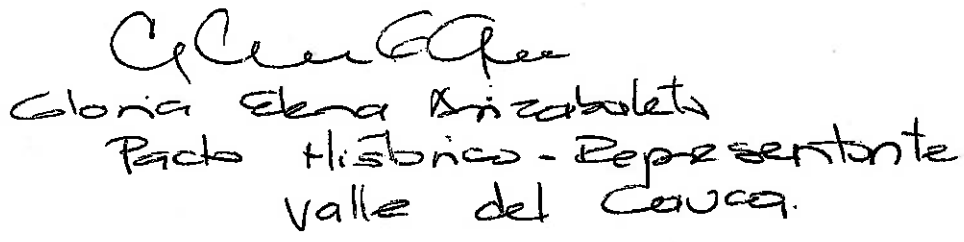 Gloria Elena Arizabaleta
Pacto Histórico - Representante
Valle del Cauca.